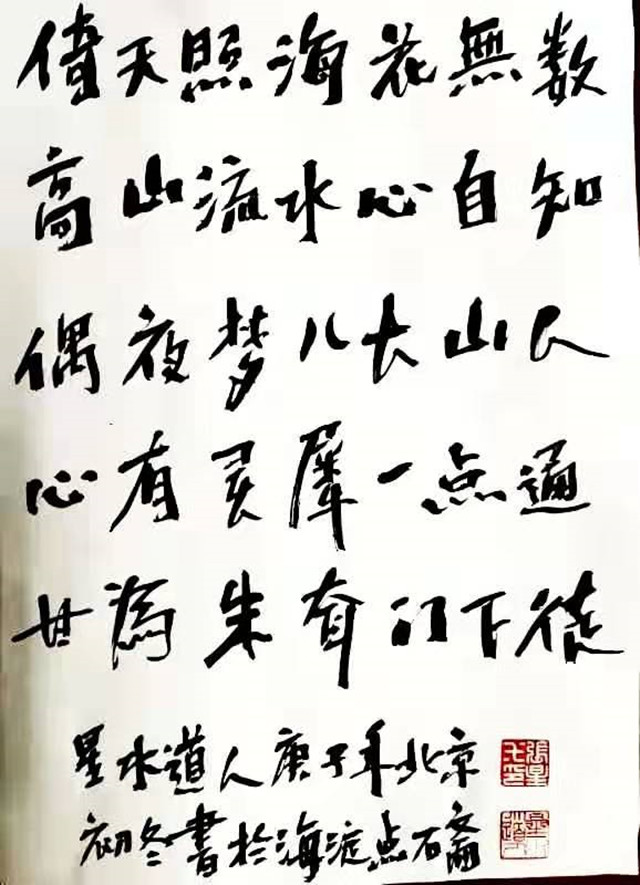 倚天照海花無数
高山流水心自知
偶夜梦八大山人
心有灵犀一点通
甘為朱耷门下徒
星水道人庚子年北京
初冬書於海淀点石斋